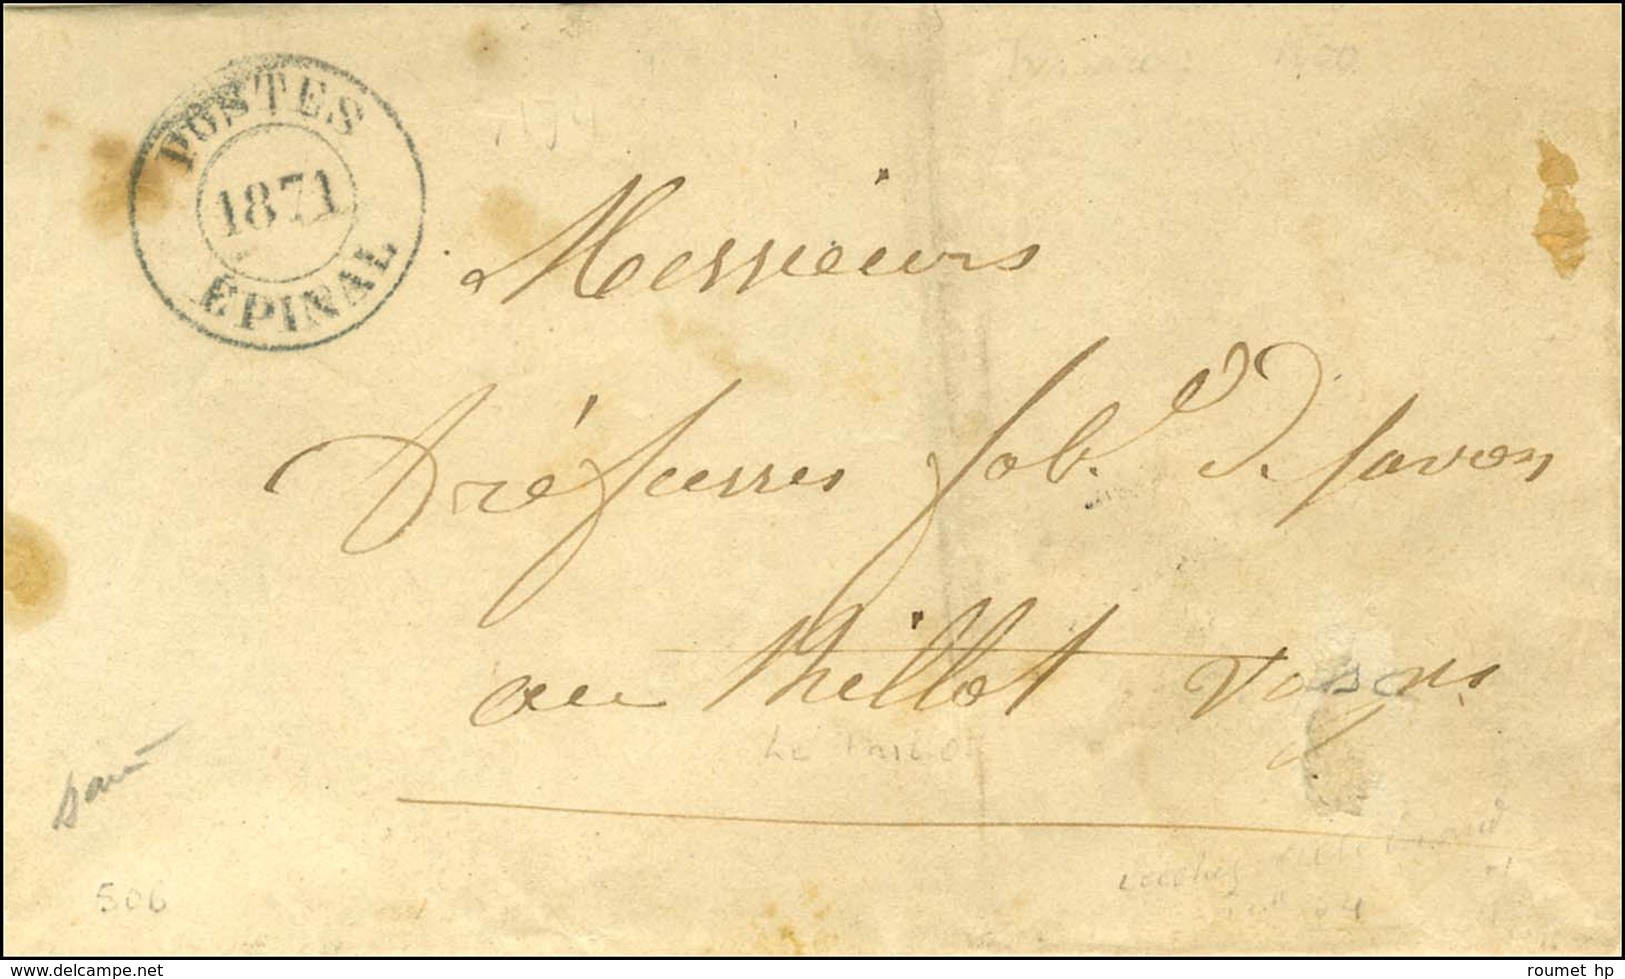 POSTES
1871
EPINAL
Messieurs
Tréfousses fabts. de savon
au Thillot Vosges
Le Thillot
506
www.delcampe.net
roumet hp